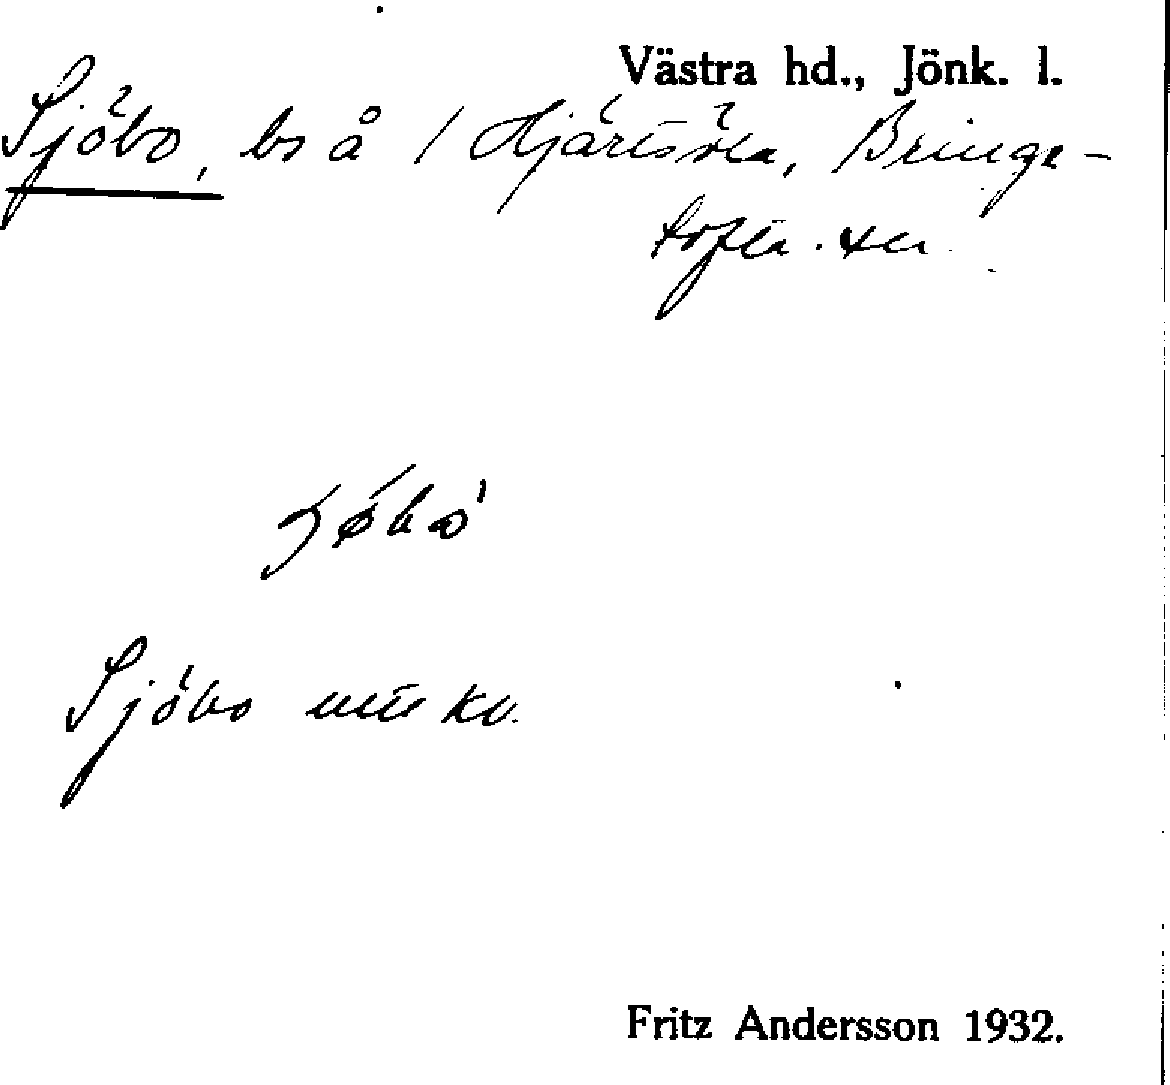 Västra hd., Jönk. l.
Sjöbo, bs å / Hjärtsöla, Bringe-
tofta. sn
Sjöbo utt kv.
Fritz Andersson 1932.